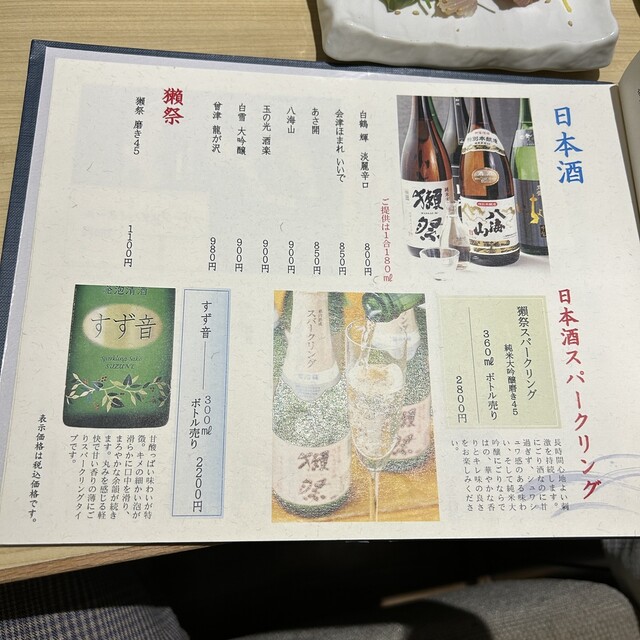 日本酒
ご提供は1合180㎖
白鶴 輝 淡麗辛口 800円
会津ほまれ いいで 850円
あさ開 850円
八海山 900円
玉の光 酒楽 900円
白雪 大吟醸 900円
曾津 龍が沢 980円
獺祭
獺祭 磨き45 1100円
獺祭
八海山
日本酒スパークリング
獺祭スパークリング
純米大吟醸磨き45
360㎖ ボトル売り
2800円
長時間心地よい刺
激を持続します。
にごり酒なのに甘
過ぎず、シュワシ
ュワ感のある味わ
い。そして純米大
吟醸にごりならで
はの、華やかな香
りとキレ味の良さ
をお楽しみくださ
い。
スパークリング
獺祭
獺祭
すず音
300㎖
ボトル売り 2200円
発泡清酒
すず音
Sparkling Sake
SUZUNE
甘酸っぱい味わいが特
徴。キメの細かい泡が
滑らかに口中を滑り、
まろやかな余韻が続き
ます。丸みを感じる軽
快で甘い香りの薄にご
りスパークリングタイ
プです。
表示価格は税込価格です。